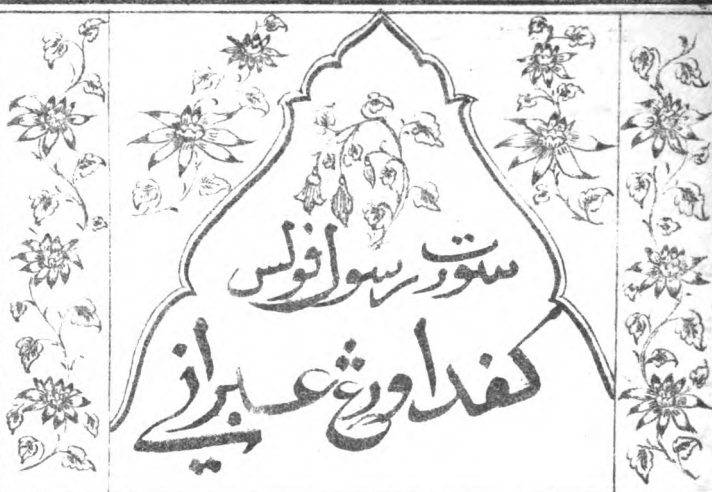 سورت رسول فولس
کفد اورڠ عبراني